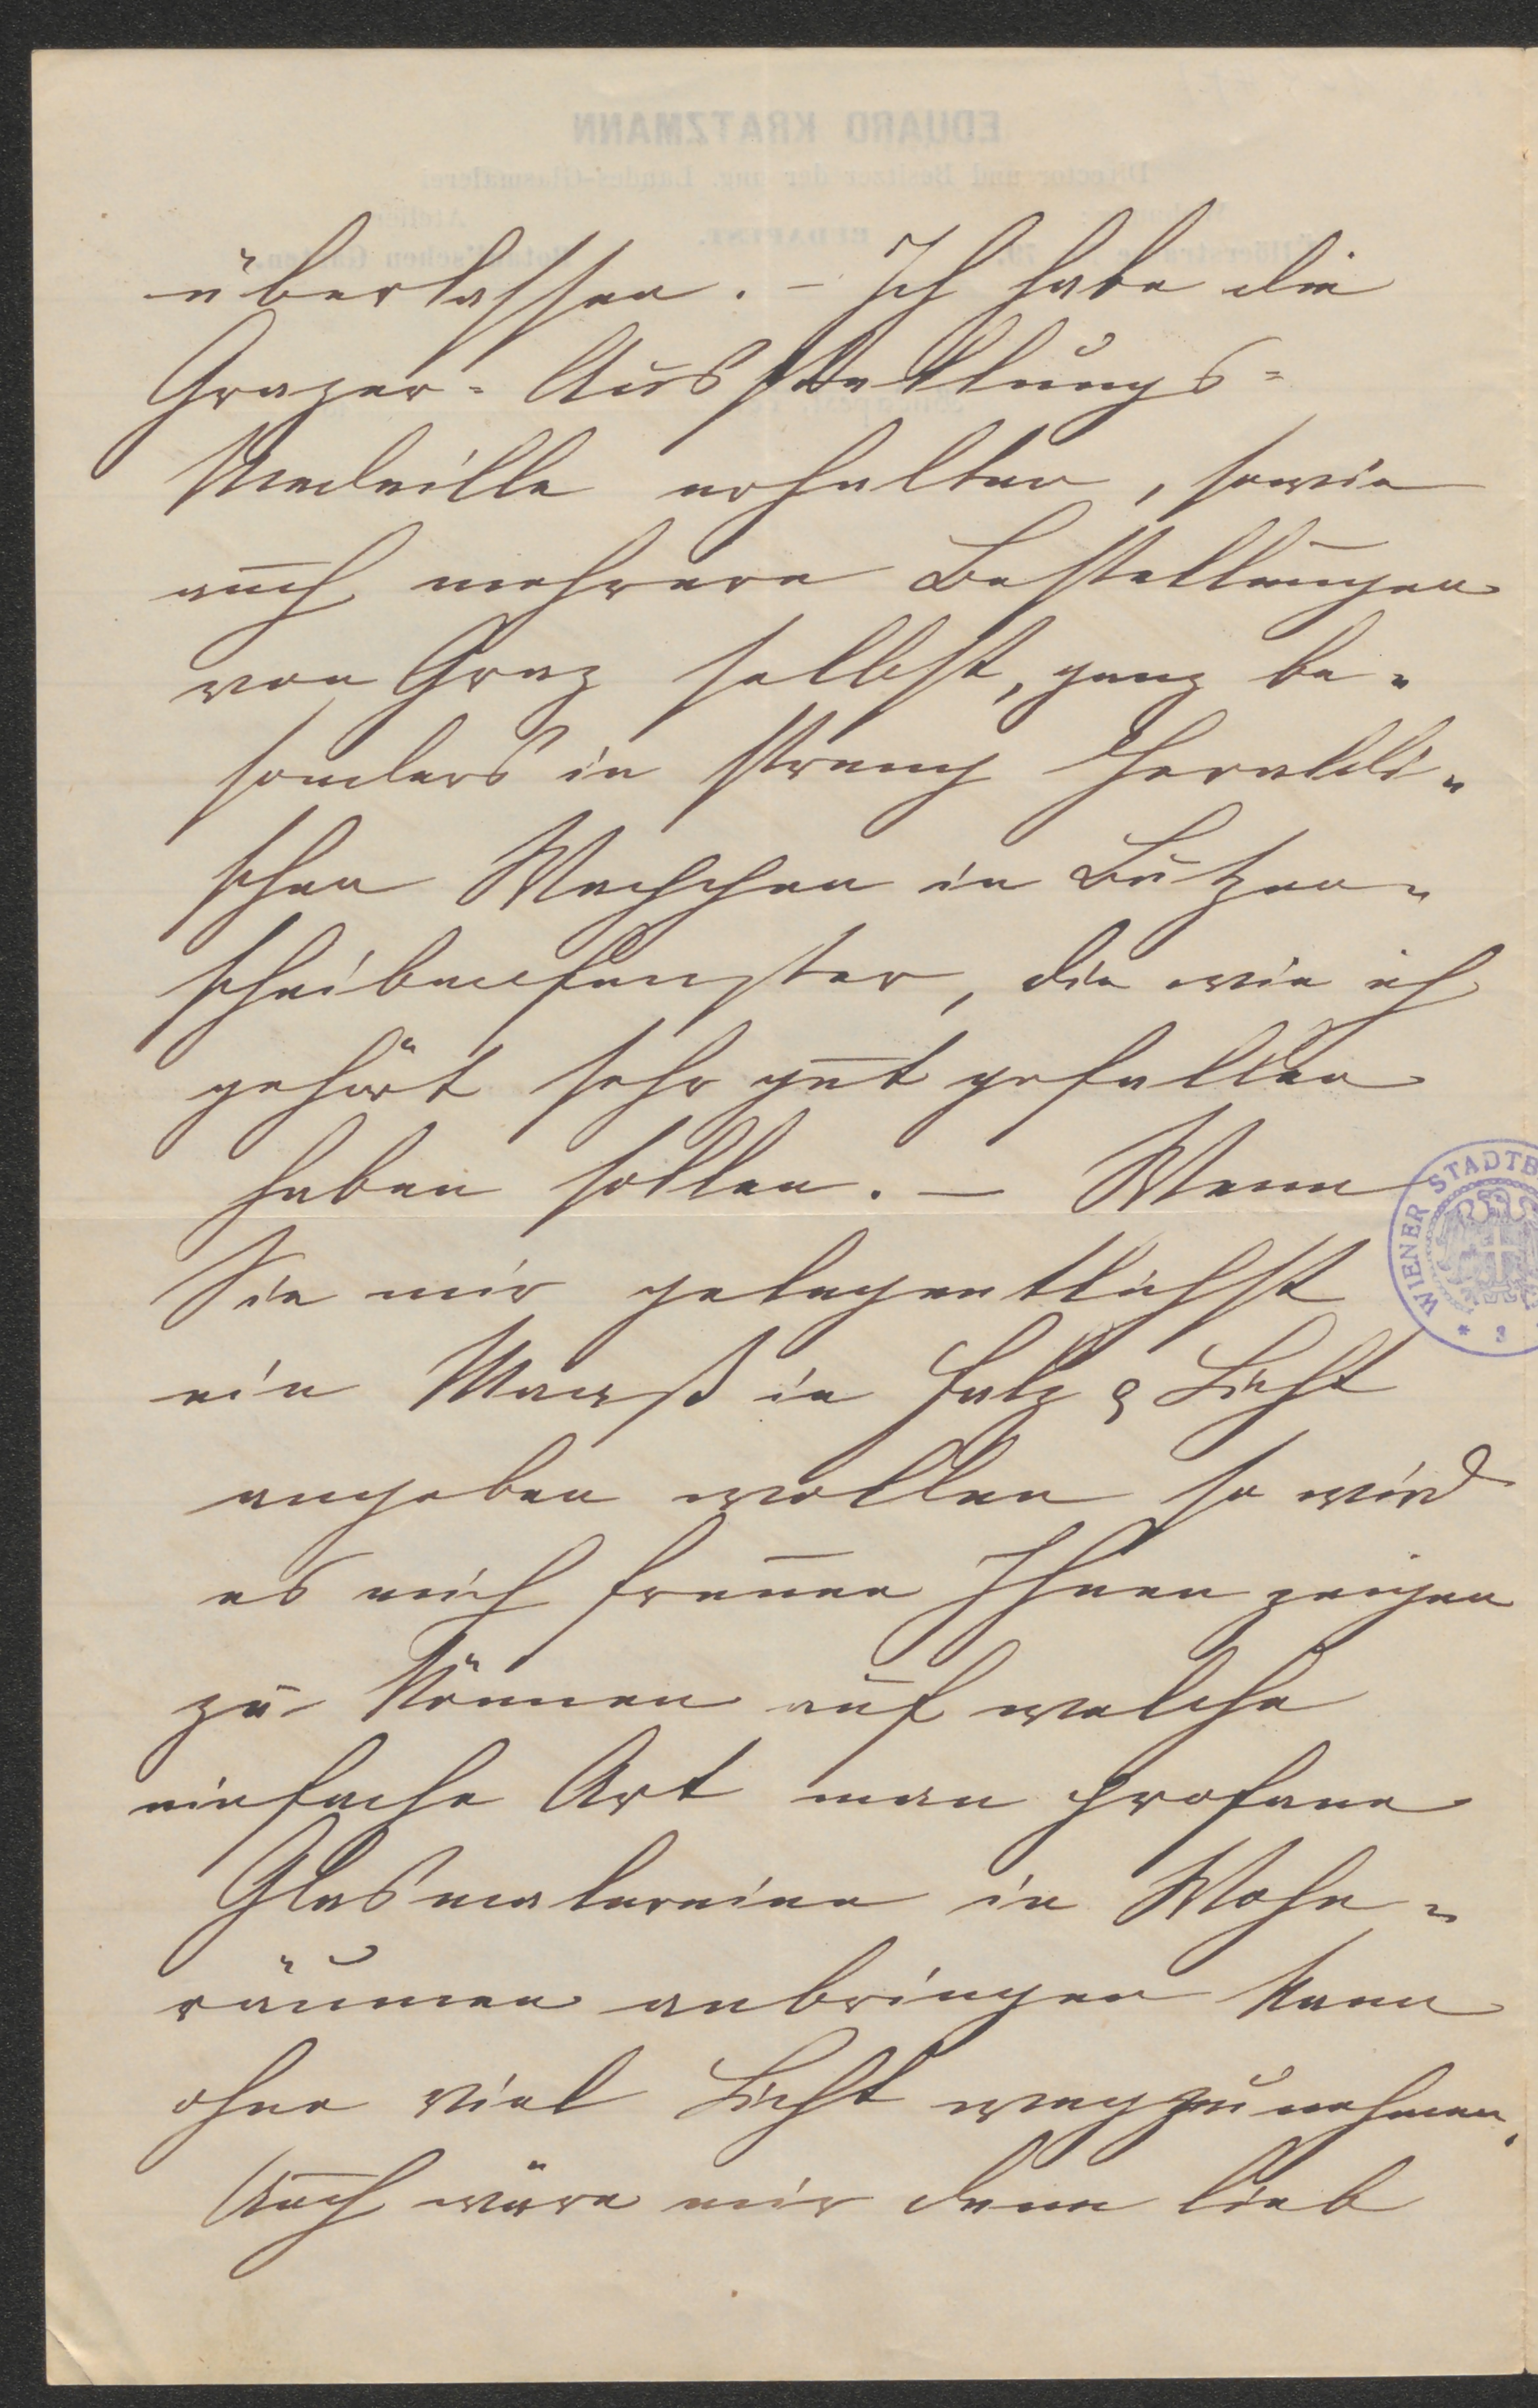 EDUARD KRATZMANN
Director und Besitzer der ung. Landes-Glasmalerei
BUDAPEST.
überlassen. – Ich habe die
Grazer-Ausstellungs-
Medaille erhalten, sowie
auch mehrere Bestellungen
von Graz selbst, ganz be-
sonders in streng heraldi-
schen Wappen in Butzen-
scheibenfenster, die wie ich
gehört sehr gut gefallen
haben sollen. – Wenn
Sie mir gelegentlichst
ein Maaß in Falz & Licht
angeben wollen so wird
es mich freuen Ihnen zeigen
zu können auf welche
einfache Art man profane
Glasmalereien in Wohn-
räumen anbringen kann
ohne viel Licht wegzunehmen.
Auch wäre mir dann lieb
WIENER STADTB